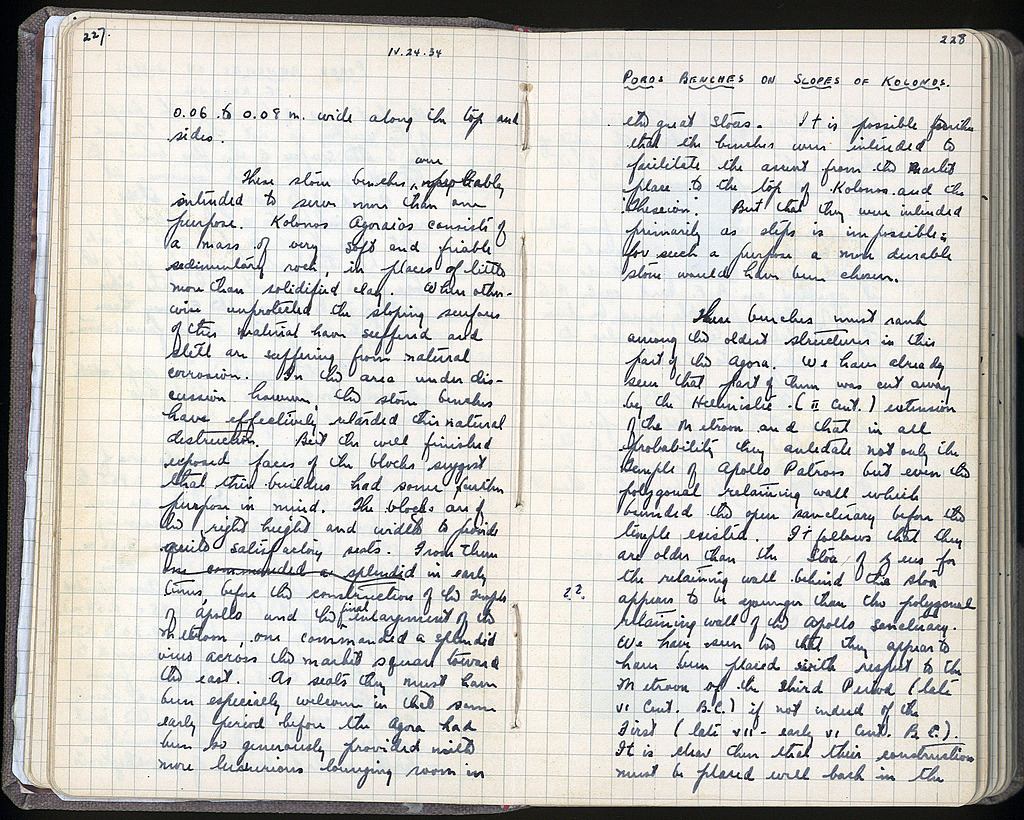 227.
IV.24.34
0.06 to 0.08 m. wide along the top and
sides.
were
These stone benches, probably
intended to serve more than one
purpose. Kolonos Agoraios consists of
a mass of very soft and friable
sedimentary rock, in places of little
more than solidified clay. When other-
wise unprotected the sloping surfaces
of this material have suffered and
still are suffering from natural
corrosion. In the area under dis-
cussion however, the stone benches
have effectively retarded this natural
destruction. But the well finished
exposed faces of the blocks suggest
that their builders had some further
purpose in mind. The blocks are of
the right height and width to provide
quite satisfactory seats. From them
one commanded a splendid in early
times, before the construction of the Temple
of Apollo and the final enlargement of the
Metroon, one commanded a splendid
view across the market square toward
the east. As seats they must have
been especially welcome in that same
early period before the Agora had
been so generously provided with
more luxurious lounging room in
228
POROS BENCHES ON SLOPES OF KOLONOS.
the great Stoas. It is possible further
that the benches were intended to
facilitate the ascent from the market
place to the top of Kolonos and the
"Theseion". But that they were intended
primarily as steps is impossible:
for such a purpose a more durable
stone would have been chosen.
These benches must rank
among the oldest structures in this
part of the Agora. We have already
seen that part of them was cut away
by the Hellenistic (II cent.) extension
of the Metroon and that in all
probability they antedate not only the
temple of Apollo Patroos but even the
polygonal retaining wall which
bounded the open sanctuary before the
temple existed. It follows that they
are older than the Stoa of Zeus for
the retaining wall behind the Stoa
??. appears to be younger than the polygonal
retaining wall of the Apollo Sanctuary.
We have seen too that they appear to
have been placed with respect to the
Metroon of the Third Period (late
VI cent. B.C.) if not indeed of the
First (late VII - early VI Cent. B.C.).
It is clear then that their construction
must be placed well back in the